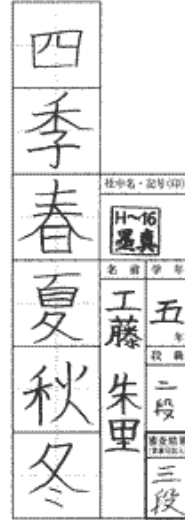 四季春夏秋冬
社中名・記号(印)
H～16
墨真
名前
工藤朱里
学年
五年
段級
二段
審査結果
三段